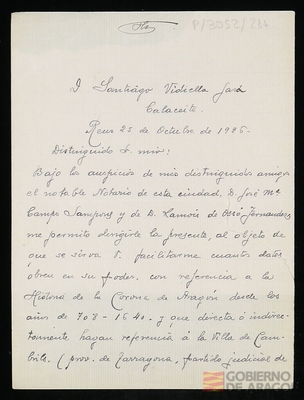 P/3052/284
D Santiago Vidiella Jasá
Calaceite.
Reus 25 de Octubre de 1926.
Distinguido Sr mio:
Bajo los auspicios de mis distinguidos amigos
el notable Notario de esta ciudad, D. José Mª
Camps Sampons y de D. Ramón de Osso-Fernandez
me permito dirigirle la presente, al objeto de
que se sirva V. facilitarme cuantos datos
obren en su poder, con referencia a la
Historia de la Corona de Aragón desde los
años de 708 - 1640 - y que directa ó indirec-
tamente hayan referencia á la Villa de Cam-
brils. (prov. de Tarragona, partido judicial de
GOBIERNO
DE ARAGON